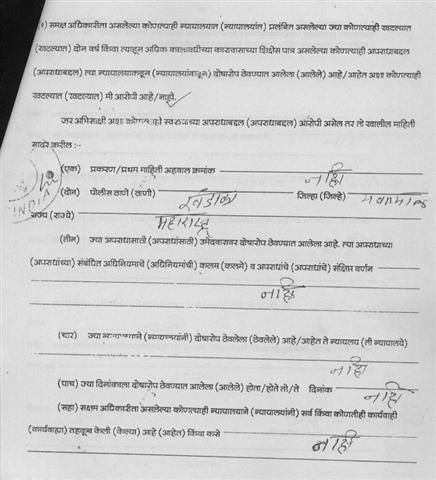 (१) समक्ष अधिकारीता असलेल्या कोणत्याही न्यायालयात (न्यायालयांत) प्रलंबित असलेल्या ज्या कोणत्याही खटल्यात
(खटल्यात) दोन वर्ष किंवा त्याहून अधिक कालावधीच्या कारावासाच्या शिक्षेस पात्र असलेल्या कोणत्याही अपराधाबद्दल
(अपराधाबद्दल) त्या न्यायालयाकडून (न्यायालयांकडून) दोषारोप ठेवण्यात आलेला (आलेले) आहे/आहेत अशा कोणत्याही
खटल्यात (खटल्यात) मी आरोपी आहे/नाही.
जर अभिसाक्षी अशा कोणत्याही स्वरुपाच्या अपराधाबद्दल (अपराधाबद्दल) आरोपी असेल तर तो खालील माहिती
सादर करील :-
(एक) प्रकरण/प्रथम माहिती अहवाल क्रमांक नाही
(दोन) पोलीस ठाणे (ठाणी) जिल्हा (जिल्हे)
राज्य (राज्ये) महाराष्ट्र
INDIA
(तीन) ज्या अपराधासाठी (अपराधांसाठी) उमेदवारावर दोषारोप ठेवण्यात आलेला आहे. त्या अपराधाच्या
(अपराधांच्या) संबंधित अधिनियमाचे (अधिनियमांची) कलम (कलमे) व अपराधांचे (अपराधांचे) संक्षिप्त वर्णन
नाही
(चार) ज्या (न्यायालयांनी) दोषारोप ठेवलेला (ठेवलेले) आहे/आहेत ते न्यायलय (ती न्यायालये)
नाही
(पाच) ज्या दिनांकाला दोषारोप ठेवण्यात आलेला (आलेले) होता/होते तो/ते दिनांक नाही
(सहा) सक्षम अधिकारीता असलेल्या कोणत्याही न्यायालयाने (न्यायालयांनी) सर्व किंवा कोणतीही कार्यवाही
(कार्यवाह्या) तहकून केली (केल्या) आहे (आहेत) किंवा कसे नाही